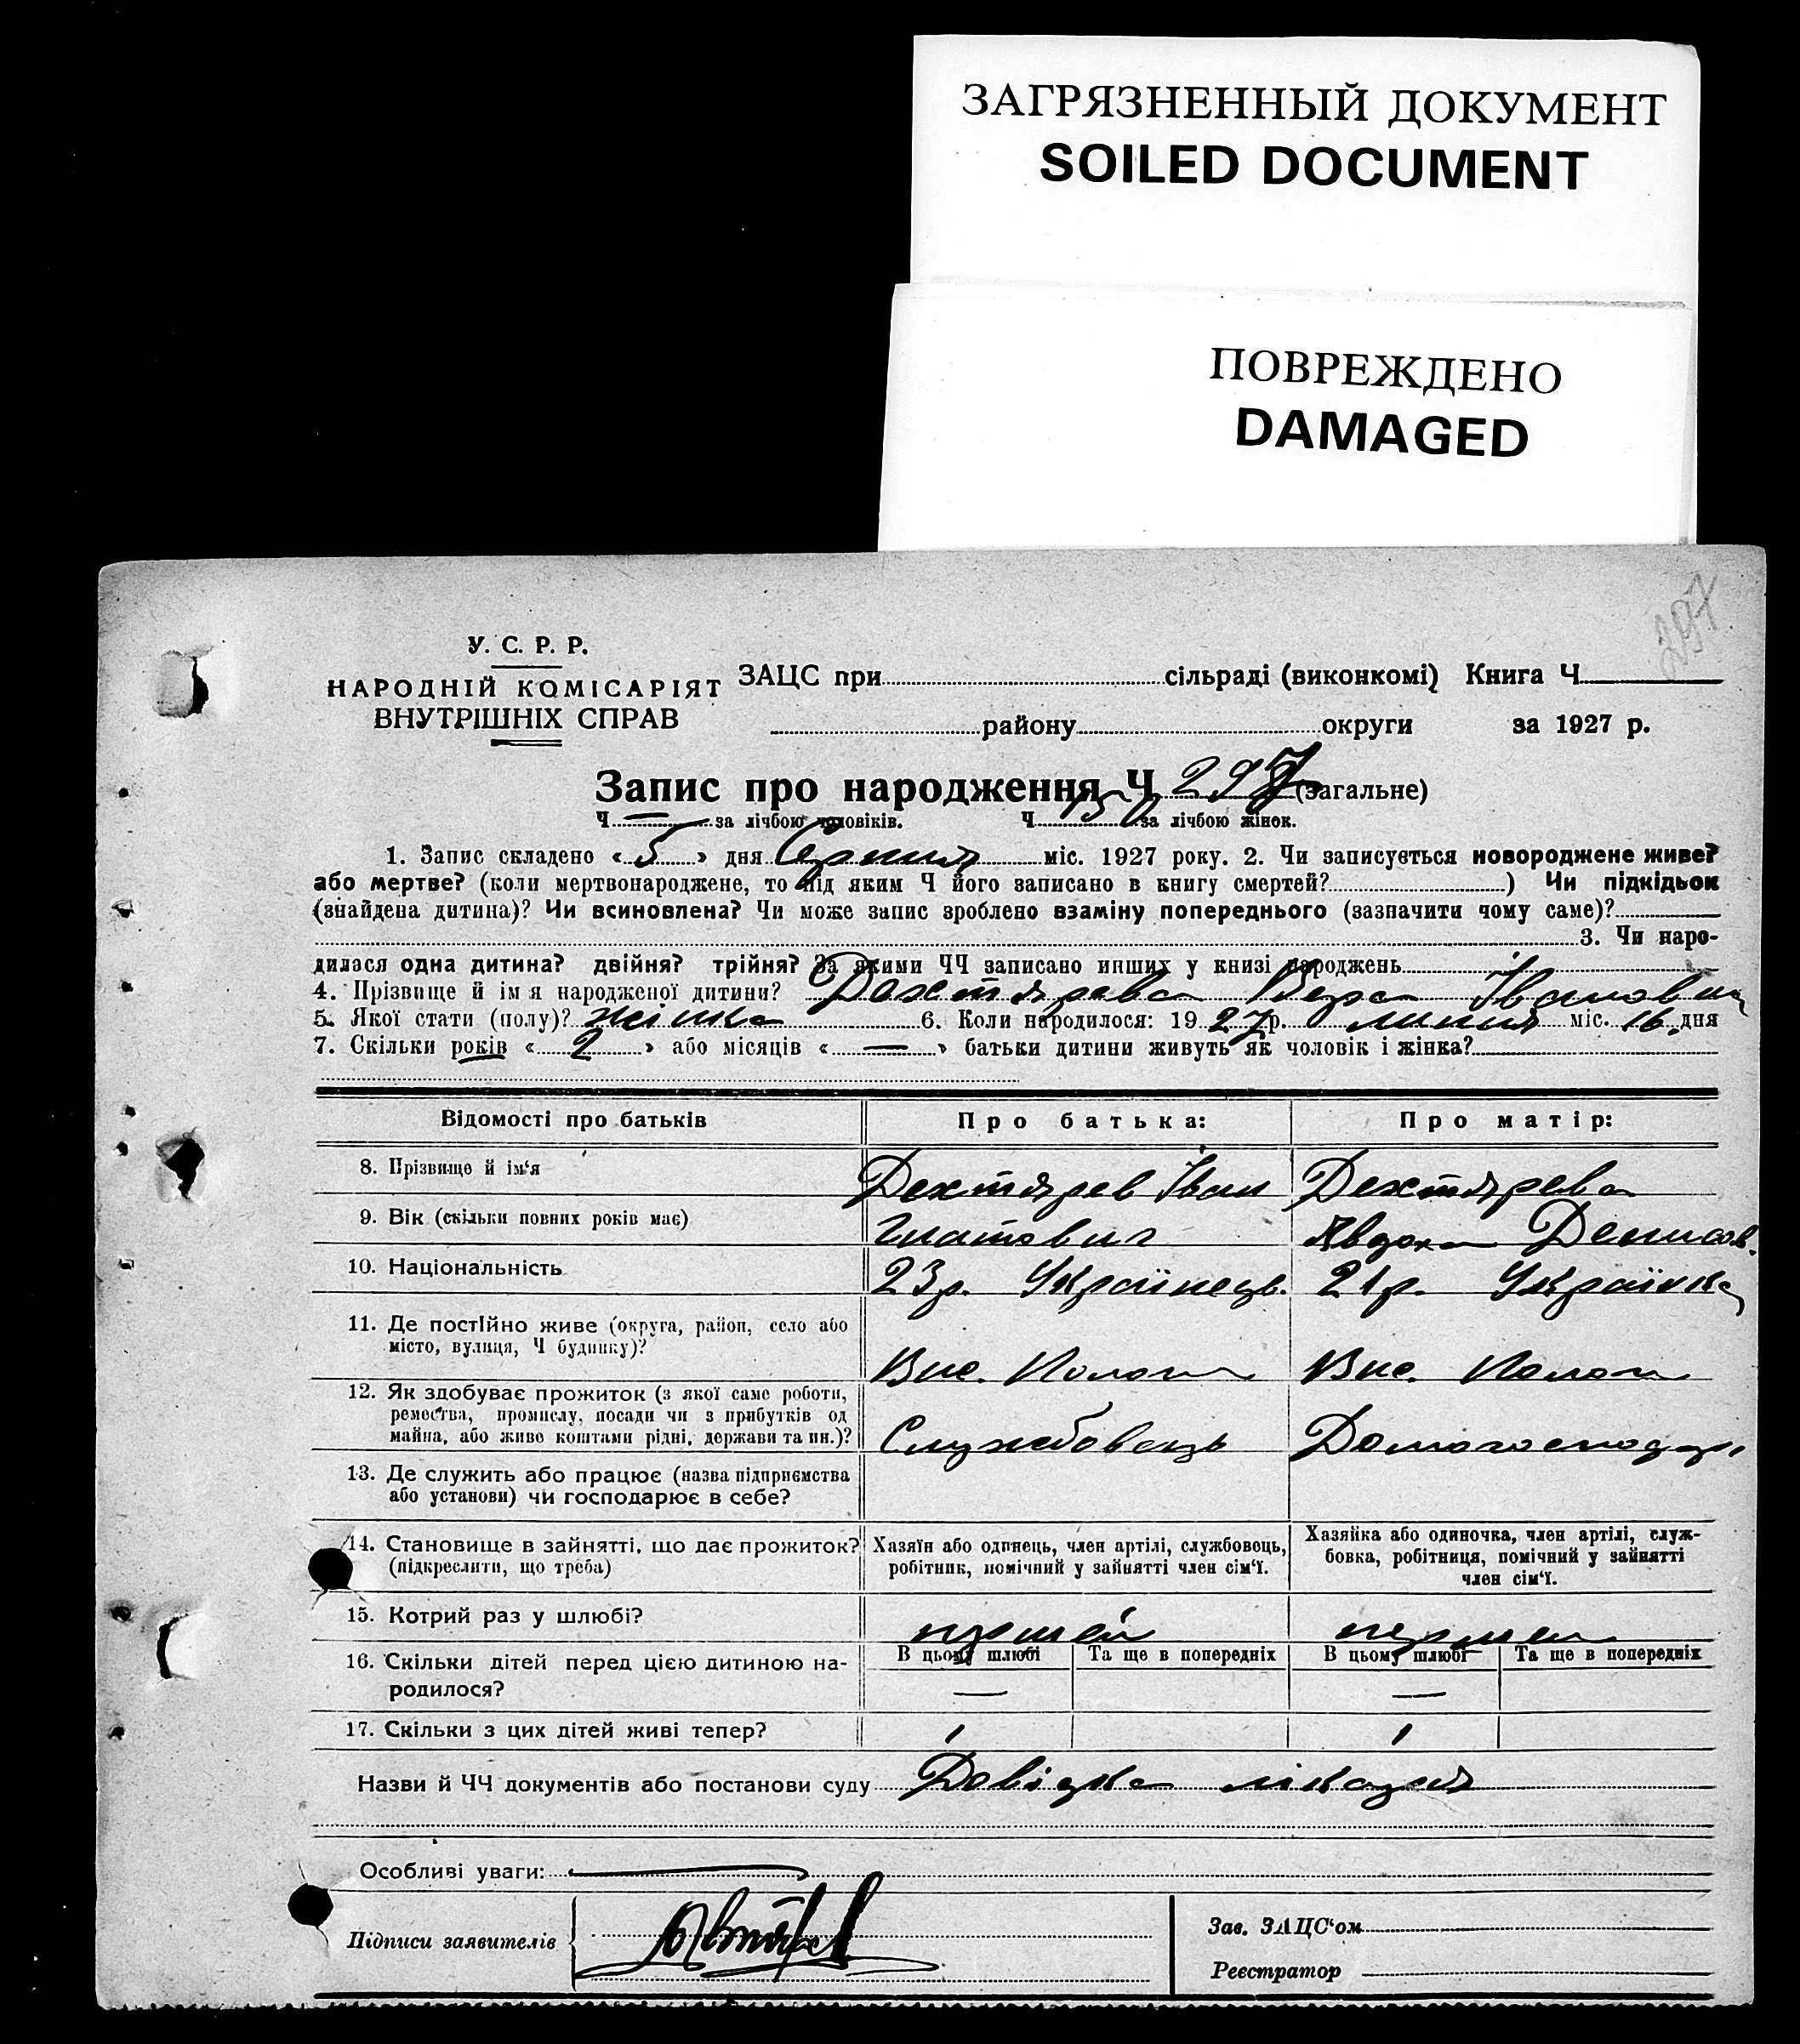 ЗАГРЯЗНЕННЫЙ ДОКУМЕНТ
SOILED DOCUMENT
ПОВРЕЖДЕНО
DAMAGED
297
У. С. Р. Р.
НАРОДНІЙ КОМІСАРІЯТ
ВНУТРІШНІХ СПРАВ
ЗАЦС при сільраді (виконкомі) Книга Ч
району округи за 1927 р.
Запис про народження Ч 297 (загальне)
Ч — за лічбою чоловіків. Ч 150 за лічбою жінок.
1. Запис складено « 5 » дня Серпня міс. 1927 року. 2. Чи записується новороджене живе?
або мертве? (коли мертвонароджене, то під яким Ч його записано в книгу смертей? ) Чи підкідьок
(знайдена дитина)? Чи всиновлена? Чи може запис зроблено взаміну попереднього (зазначити чому саме)?
3. Чи наро-
дилася одна дитина? двійня? трійня? За якими ЧЧ записано инших у книзі народжень
4. Прізвище й ім я народженої дитини? Дехтярева Вера Івановна
5. Якої стати (полу)? жінка 6. Коли народилося: 19 27 р. липня міс. 16 дня
7. Скільки років « 2 » або місяців « — » батьки дитини живуть як чоловік і жінка?
Відомості про батьків Про батька: Про матір:
8. Прізвище й ім'я Дехтярев Іван Дехтярева
9. Вік (скільки повних років має) Гнатович Явдоха Денисов.
10. Національність 23р. Українець. 21р. Українка
11. Де постійно живе (округа, район, село або
місто, вулиця, Ч будинку)?
Вис. Колона Вис. Колона
12. Як здобуває прожиток (з якої саме роботи,
ремества, промислу, посади чи з прибутків од
майна, або живе коштами рідні, держави та ин.)? Службовець Домогосподар
13. Де служить або працює (назва підприємства
або установи) чи господарює в себе?
14. Становище в зайнятті, що дає прожиток?
(підкреслити, що треба)
Хазяїн або одинець, член артілі, службовець,
робітник, помічний у зайнятті член сім'ї.
Хазяйка або одиночка, член артілі, служ-
бовка, робітниця, помічний у зайнятті
член сім'ї.
15. Котрий раз у шлюбі? перший перший
16. Скільки дітей перед цією дитиною на-
родилося?
В цьому шлюбі Та ще в попередніх В цьому шлюбі Та ще в попередніх
— —
17. Скільки з цих дітей живі тепер? 1 1
Назви й ЧЧ документів або постанови суду Довідка лікаря
Особливі уваги:
Підписи заявителів
Зав. ЗАЦС'ом
Реєстратор